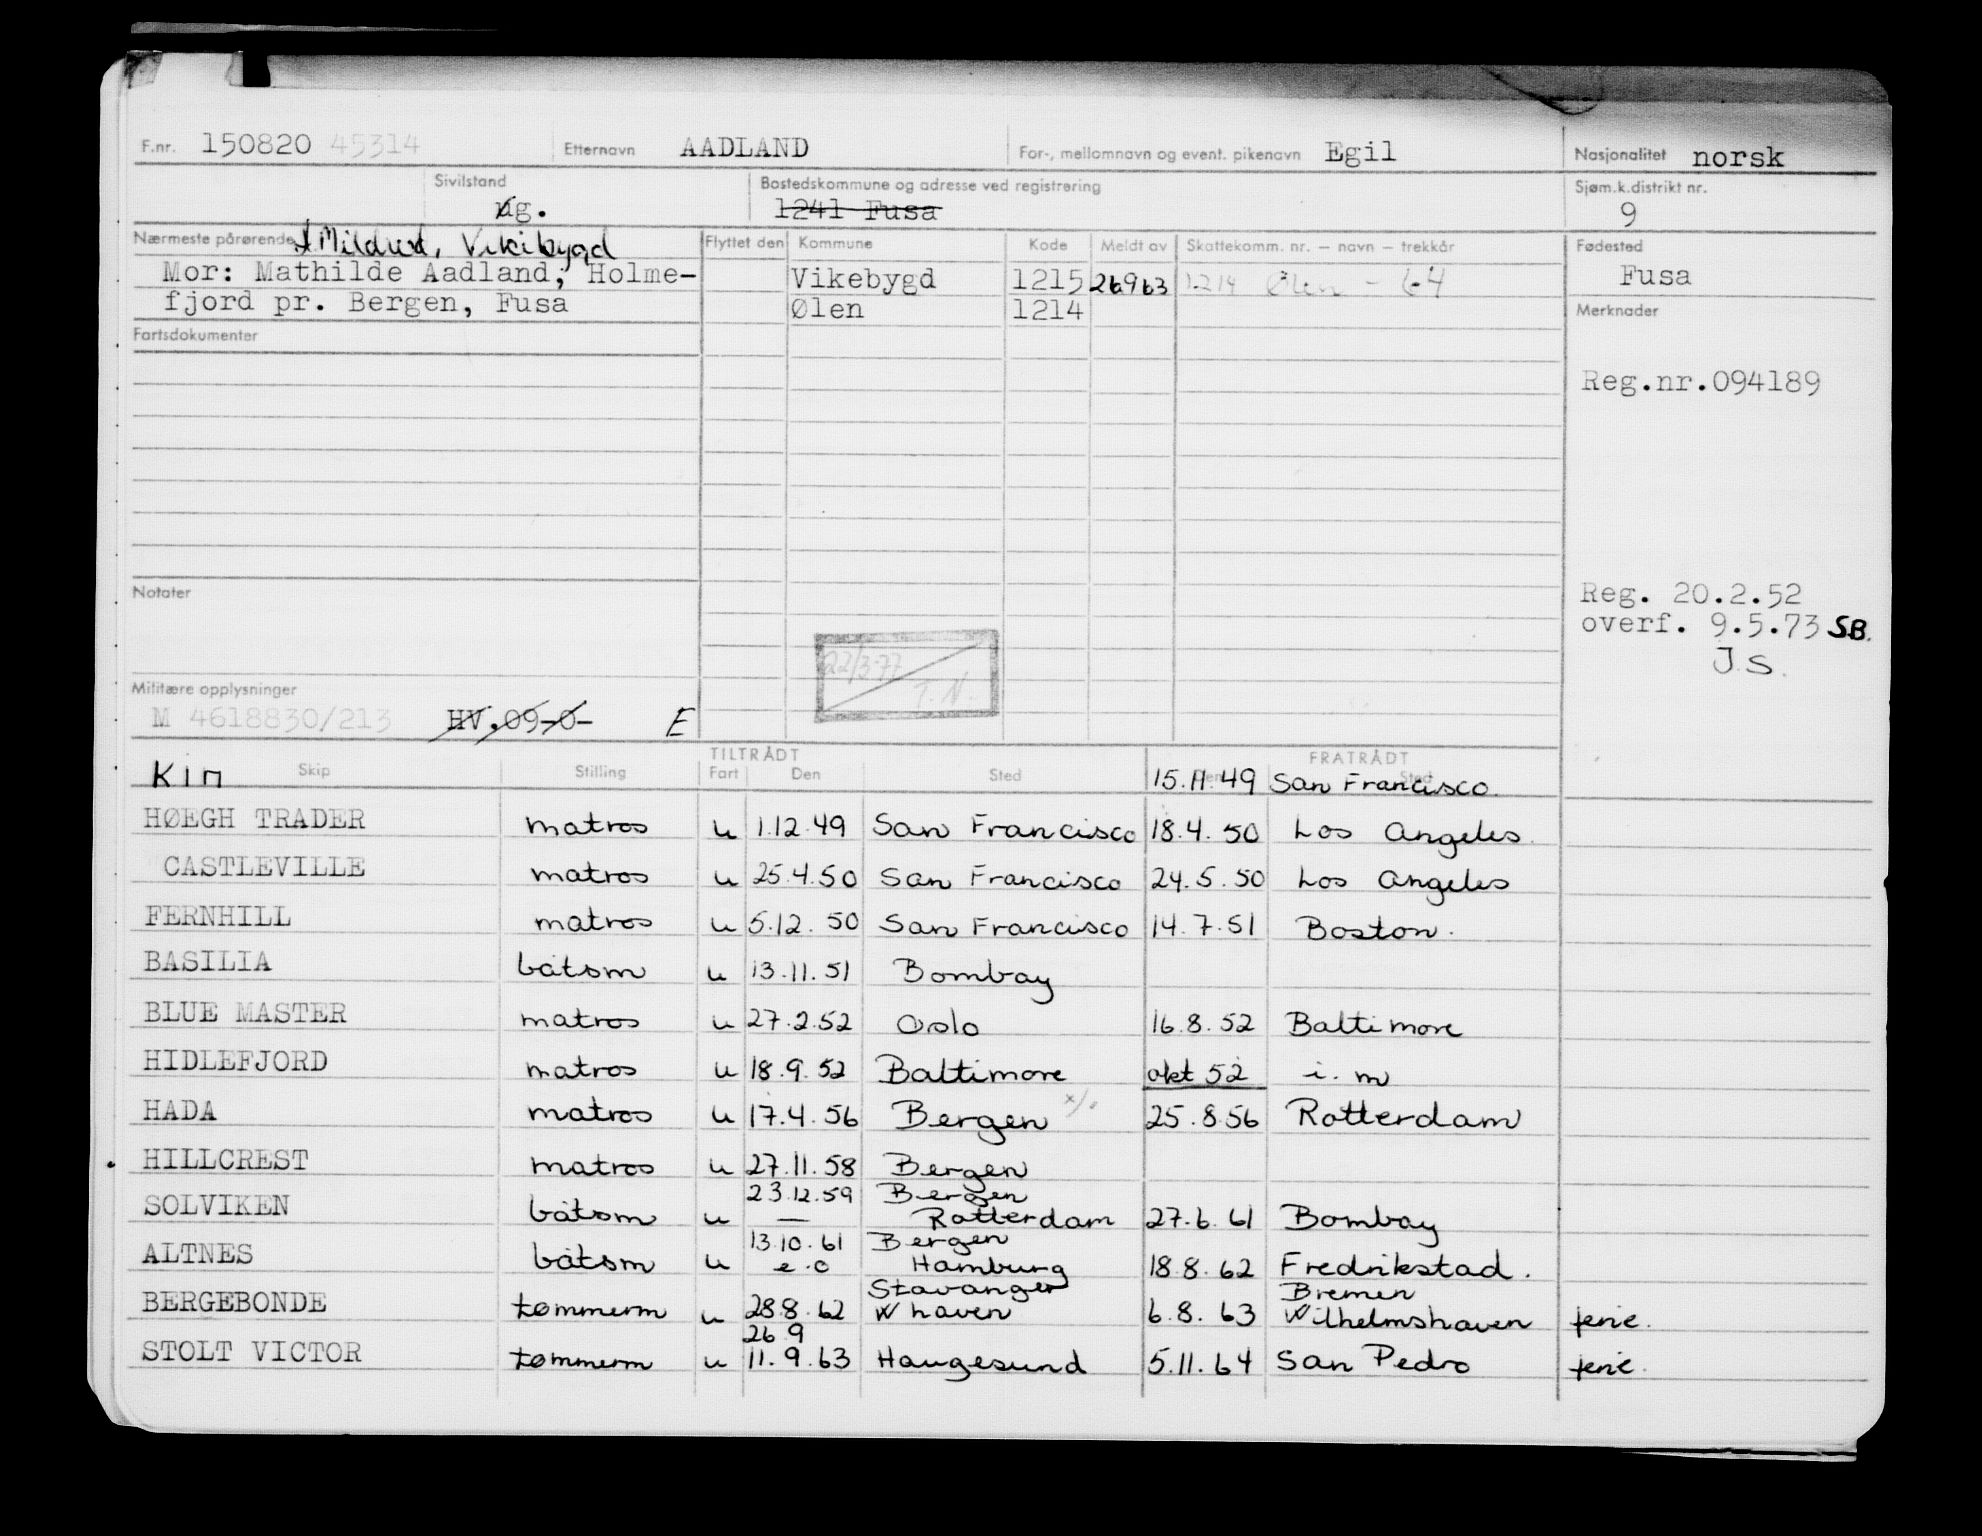 F.nr. 150820 45314 Etternavn AADLAND For-, mellomnavn og event. pikenavn Egil Nasjonalitet norsk
Sivilstand Bostedskommune og adresse ved registrering Sjøm.k.distrikt nr.
ug. 1241 Fusa 9
Nærmeste pårørende Vikebygd Flyttet den Kommune Kode Meldt av Skattekomm. nr. — navn — trekkår Fødested
Mor: Mathilde Aadland, Holme- Vikebygd 1215 26963 1214 Ølen - 64 Fusa
fjord pr. Bergen, Fusa Ølen 1214 Merknader
Fartsdokumenter
Reg.nr.094189
Notater Reg. 20.2.52
overf. 9.5.73 SB.
22/3-77 J.S.
T.N.
Militære opplysninger
M 4618830/213 HV.09-0- E
TILTRÅDT FRATRÅDT
Kin Skip Stilling Fart Den Sted 15.11.49 San Francisco
HØEGH TRADER matros u 1.12.49 San Francisco 18.4.50 Los Angeles.
CASTLEVILLE matros u 25.4.50 San Francisco 24.5.50 Los Angeles
FERNHILL matros u 5.12.50 San Francisco 14.7.51 Boston.
BASILIA båtsm u 13.11.51 Bombay
BLUE MASTER matros u 27.2.52 Oslo 16.8.52 Baltimore
HIDLEFJORD matros u 18.9.52 Baltimore okt 52 i.m
HADA matros u 17.4.56 Bergen x/. 25.8.56 Rotterdam
HILLCREST matros u 27.11.58 Bergen
23.12.59 Bergen
SOLVIKEN båtsm u — Rotterdam 27.6.61 Bombay
13.10.61 Bergen
ALTNES båtsm u e.o Hamburg 18.8.62 Fredrikstad.
Stavanger Bremen
BERGEBONDE tømmerm u 28.8.62 W haven 6.8.63 Wilhelmshaven ferie.
26 9
STOLT VICTOR tømmerm u 11.9.63 Haugesund 5.11.64 San Pedro ferie.